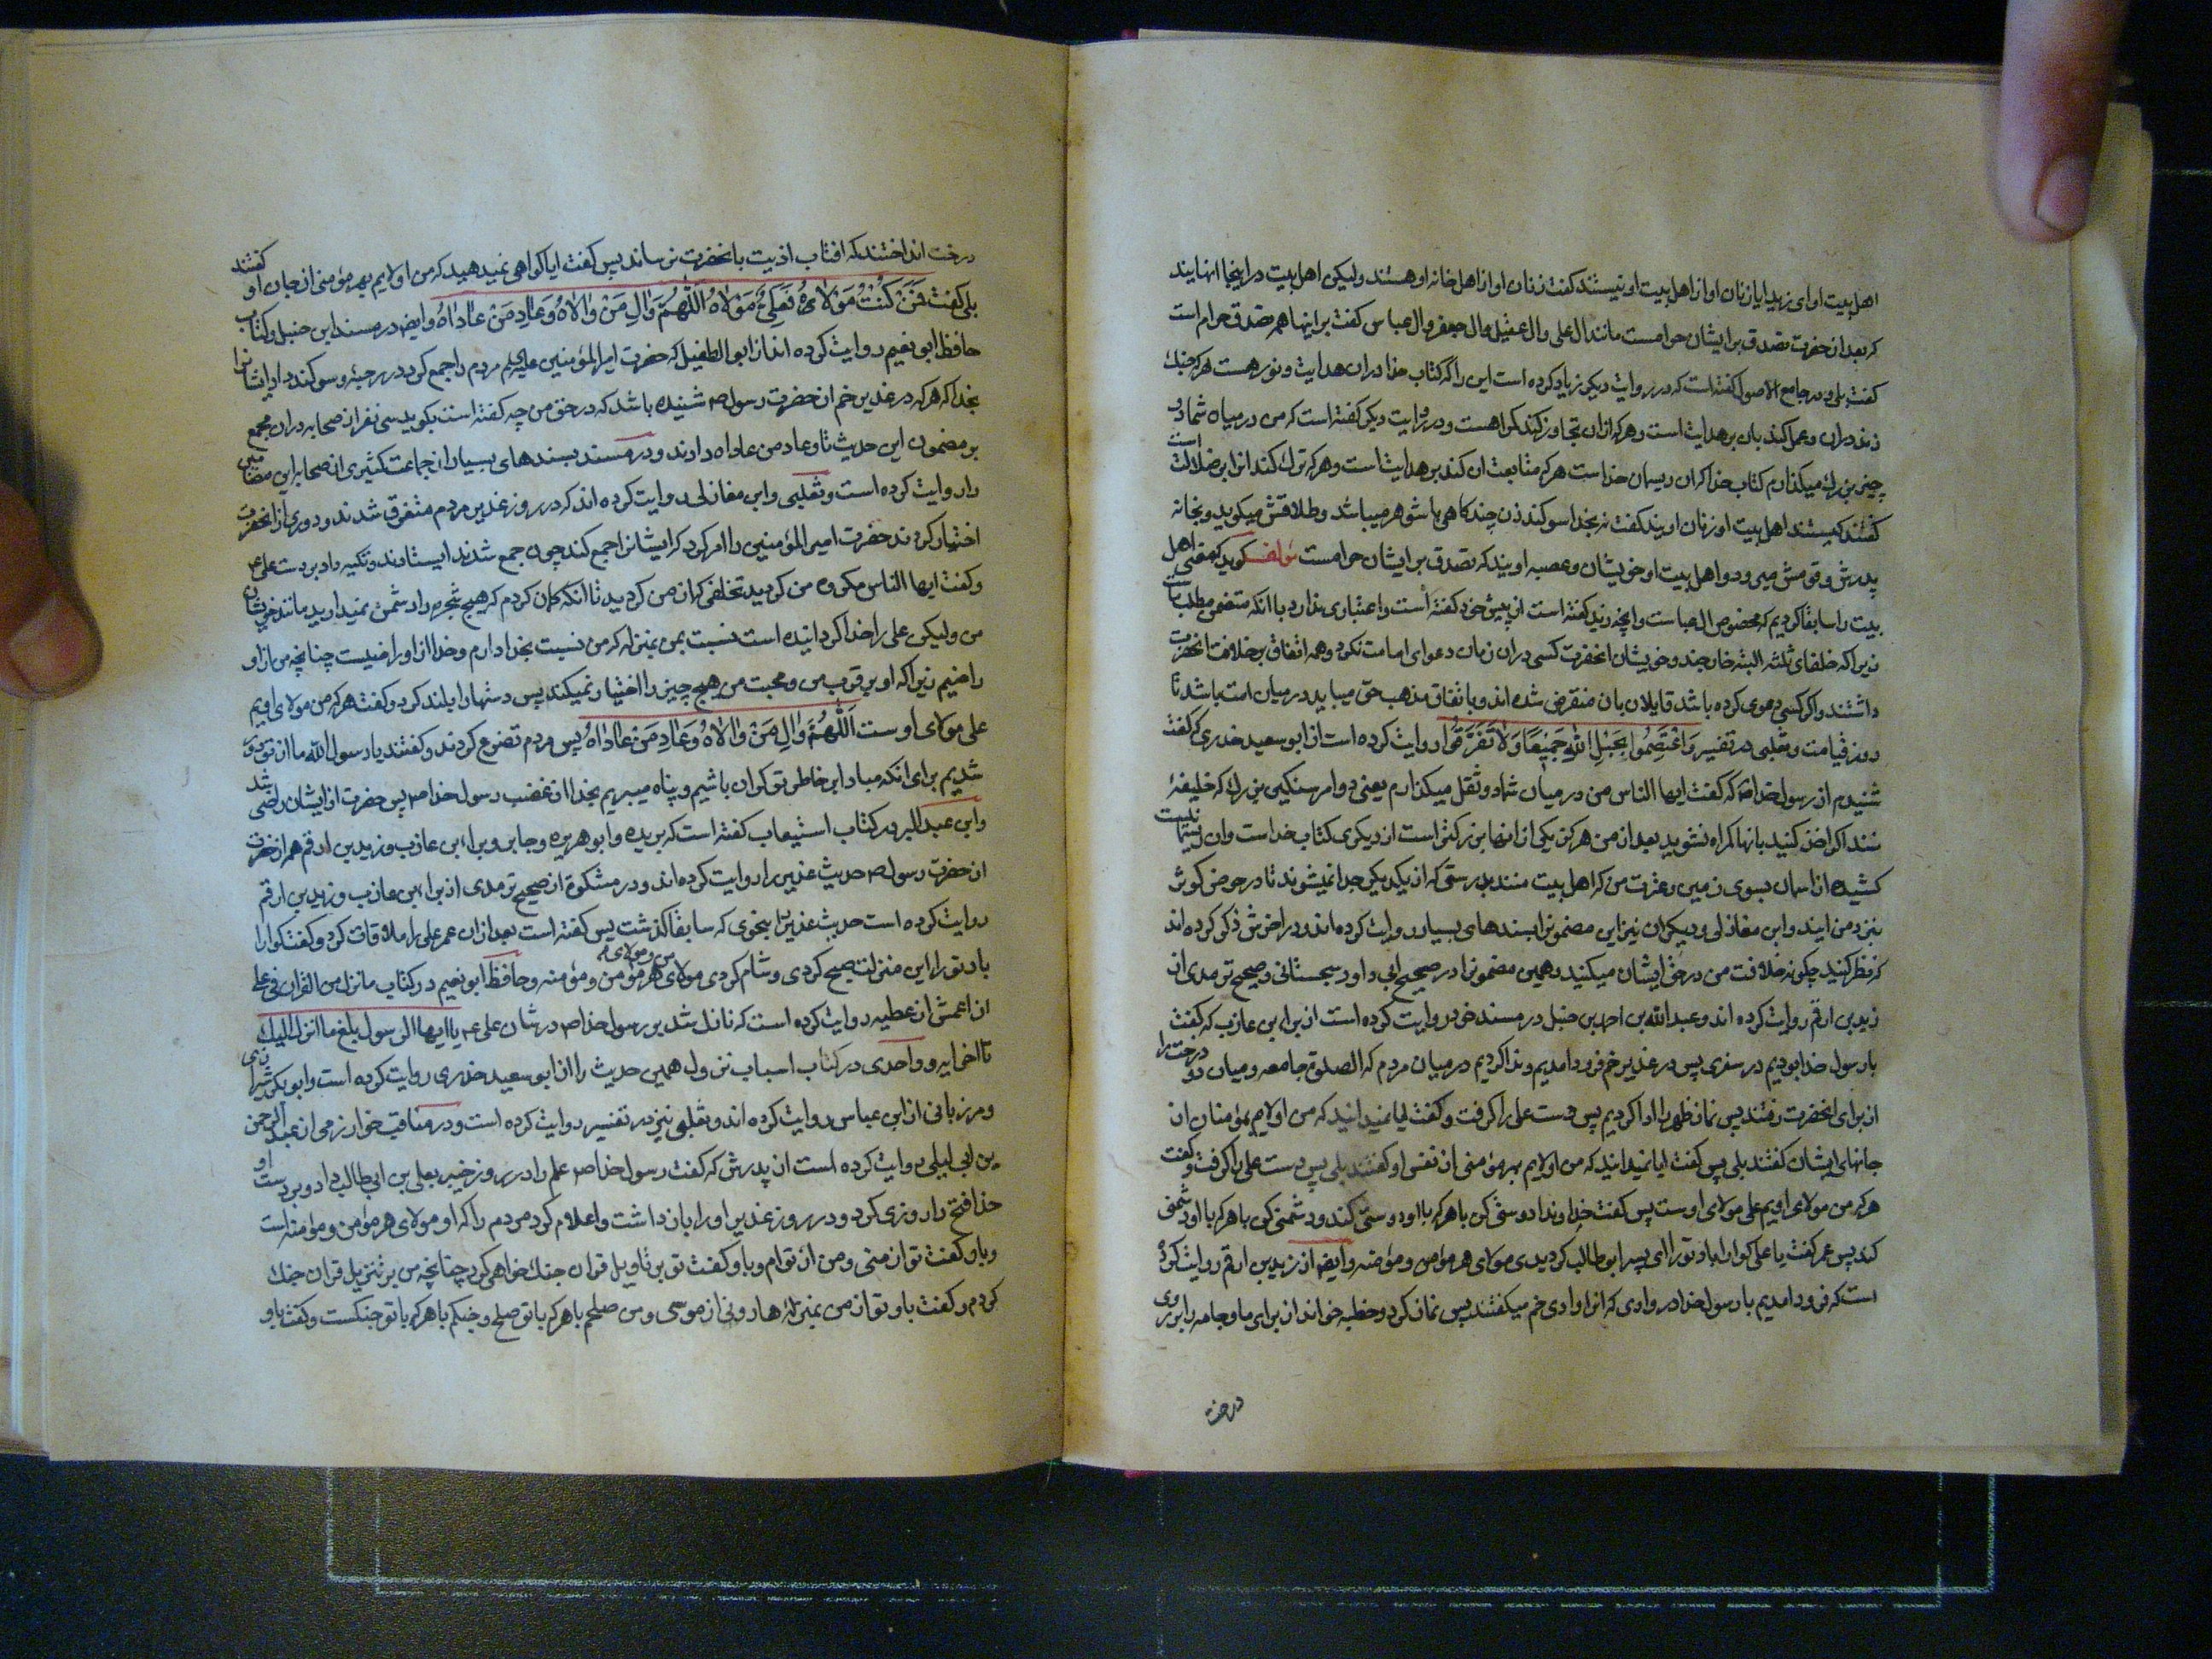 اهل بیت او ای زید ایا زنان او از اهل بیت او نیستند کفت زنان او از اهل خانه او هستند ولیکن اهل بیت در اینجا انهایند
که بعد ان حضرت تصدق بر ایشان حرامست مانند ال علی وال عقیل وال جعفر وال عباس کفت بر اینها همه تصدق حرام است
کفت بلی و در جامع الاصول کفته است که در روایت دیکر زیاد کرده است این را که کتاب خدا در ان هدایت و نور هست هر که چنك
زند در ان و عمل کند بان بر هدایت است و هر که از ان تجاوز کند کمراهست و در روایت دیکر کفته است که من در میان شما دو
چیز بزرك میکذارم کتاب خدا که ان ریسمان خداست هر که متابعت ان کند بر هدایت است و هر که ترك کند انرا بر ضلالت است
کفتند کیستند اهل بیت او زنان اویند کفت نه بخدا سوکند زن چند کاهی با شوهر میباشد و طلاقش میکوید و بخانه
پدرش و قومش میرود و اهل بیت او خویشان و عصبه اویند که تصدق بر ایشان حرامست مؤلف کوید که معنی اهل
بیت را سابقا کردیم که مخصوص ال عباست و انچه زید کفته است از پیش خود کفته است و اعتباری ندارد با انکه متضمن مطلب ماست
زیرا که خلفای ثلثه البته خارجند و خویشان انحضرت کسی در ان زمان دعوای امامت نکرد و همه اتفاق بر خلافت انحضرت
داشتند و اکر کسی دعوی کرده باشد قایلان بان منقرض شده اند و باتفاق مذهب حق میباید در میان امت باشد تا
روز قیامت و ثعلبی در تفسیر وَاعْتَصِمُوا بِحَبْلِ اللّٰهِ جَمِیْعًا وَلَا تَفَرَّقُوا روایت کرده است از ابو سعید خدری که کفت
شنیدم از رسول خدا ص که کفت ایها الناس من در میان شما دو ثقل میکذارم یعنی دو امر سنکین بزرك که خلیفۀ
منند اکر اخذ کنید بانها کمراه نشوید بعد از من هرکز یکی از اینها بزرکتر است از دیکری کتاب خداست و ان ریسمانیست
کشیده از اسمان بسوی زمین و عترت من که اهل بیت منند بدرستی که از یکدیکر جدا نمیشوند تا در حوض کوثر
بنزد من ایند و ابن مغازلی و دیکران نیز این مضمونرا بسندهای بسیار روایت کرده اند و در اخرش ذکر کرده اند
که نظر کنید چکونه خلافت من در حق ایشان میکنید و همین مضمونرا در صحیح ابی داود سجستانی و صحیح ترمدی از
زید بن ارقم روایت کرده اند و عبد الله بن احمد بن حنبل در مسند خود روایت کرده است از برا ابن عازب که کفت
با رسول خدا بودیم در سفری پس در غدیر خم فرود امدیم و ندا کردیم در میان مردم که الصلوة جامعه و میان دو درخت را
از برای انحضرت رفتند پس نماز ظهر را ادا کردیم پس دست علی را کرفت و کفت ایا نمیدانید که من اولایم بمؤمنان از
جانهای ایشان کفتند بلی پس کفت ایا نمیدانید که من اولایم بهر مؤمنی از نفس او کفتند بلی پس دست علی را کرفت و کفت
هر که من مولای اویم علی مولای اوست پس کفت خداوندا دوستی کن با هر که با او دوستی کند و دشمنی کن با هر که با او دشمنی
کند پس عمر کفت یا علی کوارا باد تو را ای پسر ابو طالب کردیدی مولای هر مؤمن و مؤمنه و ایضا از زید بن ارقم روایت کرده
است که فرود امدیم با رسول خدا در وادی که انرا وادی خم میکفتند پس نماز کرد و خطبه خواند از برای ما و جامه را بر روی
درخت
درخت انداختند که افتاب اذیت بانحضرت نرساند پس کفت ایا کواهی نمیدهید که من اولایم بهر مؤمنی از جان او کفتند
بلی کفت فَمَنْ کُنْتُ مَوْلَاهُ فَعَلِیٌّ مَوْلَاهُ اَللّٰهُمَّ وَالِ مَنْ وَالَاهُ وَعَادِ مَنْ عَادَاهُ و ایضا در مسند ابن حنبل و کتاب
حافظ ابو نعیم روایت کرده اند از ابو الطفیل که حضرت امیر المؤمنین علیه السلم مردم را جمع کرد در رحبه و سوکند داد ایشانرا
بخدا که هر که در غدیر خم از حضرت رسول ص شنیده باشد که در حق من چه کفته است بکوید سی نفر از صحابه در ان مجمع
بر مضمون این حدیث تا وعاد من عاداه دادند و در مسند بسندهای بسیار از جماعت کثیری از صحابه این مضامین
را روایت کرده است و ثعلبی و ابن مغازلی روایت کرده اند که در روز غدیر مردم متفرق شدند و دوری از انحضرت
اختیار کردند حضرت امیر المؤمنین را امر کرد که ایشانرا جمع کند چون جمع شدند ایستادند و تکیه داد بر دست علی ع
و کفت ایها الناس مکروه من کردید تخلفی که از من کردید تا انکه کمان کردم که هیچ شجره را دشمن نمیدارید مانند خویشان
من ولیکن علی را خدا کردانیده است نسبت بمن بمنزله که من نسبت بخدا دارم و خدا از او راضیست چنانچه من از او
راضیم زیرا که او بر قرب من و محبت من هیچ چیز را اختیار نمیکند پس دستها را بلند کرد و کفت هر که من مولای اویم
علی مولای اوست اَللّٰهُمَّ وَالِ مَنْ وَالَاهُ وَعَادِ مَنْ عَادَاهُ پس مردم تضرع کردند و کفتند یا رسول الله ما از تو دور
شدیم برای انکه مبادا بر خاطر تو کران باشیم و پناه میبریم بخدا از غضب رسول خدا ص پس حضرت از ایشان راضی شد
و ابن عبد البر در کتاب استیعاب کفته است که بریده و ابو هریره و جابر و برا ابن عازب و زید بن ارقم همه از حضرت
از حضرت رسول ص حدیث غدیر را روایت کرده اند و در مشکوة از صحیح ترمدی از برا ابن عازب و زید بن ارقم
روایت کرده است حدیث غدیر را بنحوی که سابقا کذشت پس کفته است بعد از ان عمر علی را ملاقات کرد و کفت کوارا
باد تو را این منزلت صبح کردی و شام کردی مولای هر مؤمن و مؤمنه و حافظ ابو نعیم در کتاب ما نزل من القران فی علی
من و مولای
از اعمش از عطیه روایت کرده است که نازل شد بر رسول خدا ص در شان علی ع یا ایها الرسول بلغ ما انزل الیك
تا اخر ایه و واحدی در کتاب اسباب نزول همین حدیث را از ابو سعید خدری روایت کرده است و ابو بکر شیرازی
و مرزبانی از ابن عباس روایت کرده اند و ثعلبی نیز در تفسیر روایت کرده است و در مناقب خوارزمی از عبد الرحمن
بن ابی لیلی روایت کرده است از پدرش که کفت رسول خدا ص علم را در روز خیبر بعلی بن ابی طالب داد و بر دست او
خدا فتح را روزی کرد و در روز غدیر او را بازداشت و اعلام کرد مردم را که او مولای هر مؤمن و مؤمنه است
و باو کفت تو از منی و من از توام و باو کفت تو بر تاویل قران جنك خواهی کرد چنانچه من بر تنزیل قران جنك
کردم و کفت باو تو از من بمنزلۀ هارونی از موسی و من صلحم با هر که با تو صلح و جنکم با هر که با تو جنکست و کفت باو